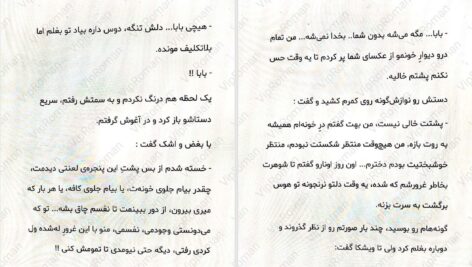 - بابا... مگه می‌شه بدون شما.. بخدا نمی‌شه... من تمام
درو دیوارِ خونمو از عکسای شما پر کردم تا یه وقت حس
نکنم پشتم خالیه.
دستش رو نوازش‌گونه روی کمرم کشید و گفت :
- پشتت خالی نیست، من بهت گفتم درِ خونه‌ام همیشه
به روت بازه. من هیچ‌وقت منتظر شکستت نبودم، منتظر
خوشبختیت بودم دخترم... اون روز اونارو گفتم تا شوهرت
بخاطر غرورشم که شده، یه وقت دلتو نرنجونه تو هوس
برگشت به سرت بزنه.
گونه‌هام رو بوسید، چند بار صورتم رو از نظر گذروند و
دوباره بغلم کرد ولی تا ویشکا گفت:
- هیچی بابا... دلش تنگه، دوس داره بیاد تو بغلم اما
بلاتکلیف مونده.
- بابا !!
یک لحظه هم درنگ نکردم و به سمتش رفتم، سریع
دستاشو باز کرد و در آغوش گرفتم.
با بغض و اشک گفت :
- خسته شدم از بس پشتِ این پنجره‌ی لعنتی دیدمت،
چقدر بیام جلوی خونه‌ت، یا بیام جلوی کافه، یا هر بار که
میری بیرون، از دور ببینمت تا نفسم چاق بشه... تو که
می‌دونستی وجودمی، نفسمی، منو با این غرور له‌شده ول
کردی رفتی، دیگه حتی نیومدی تا تمومش کنی !!